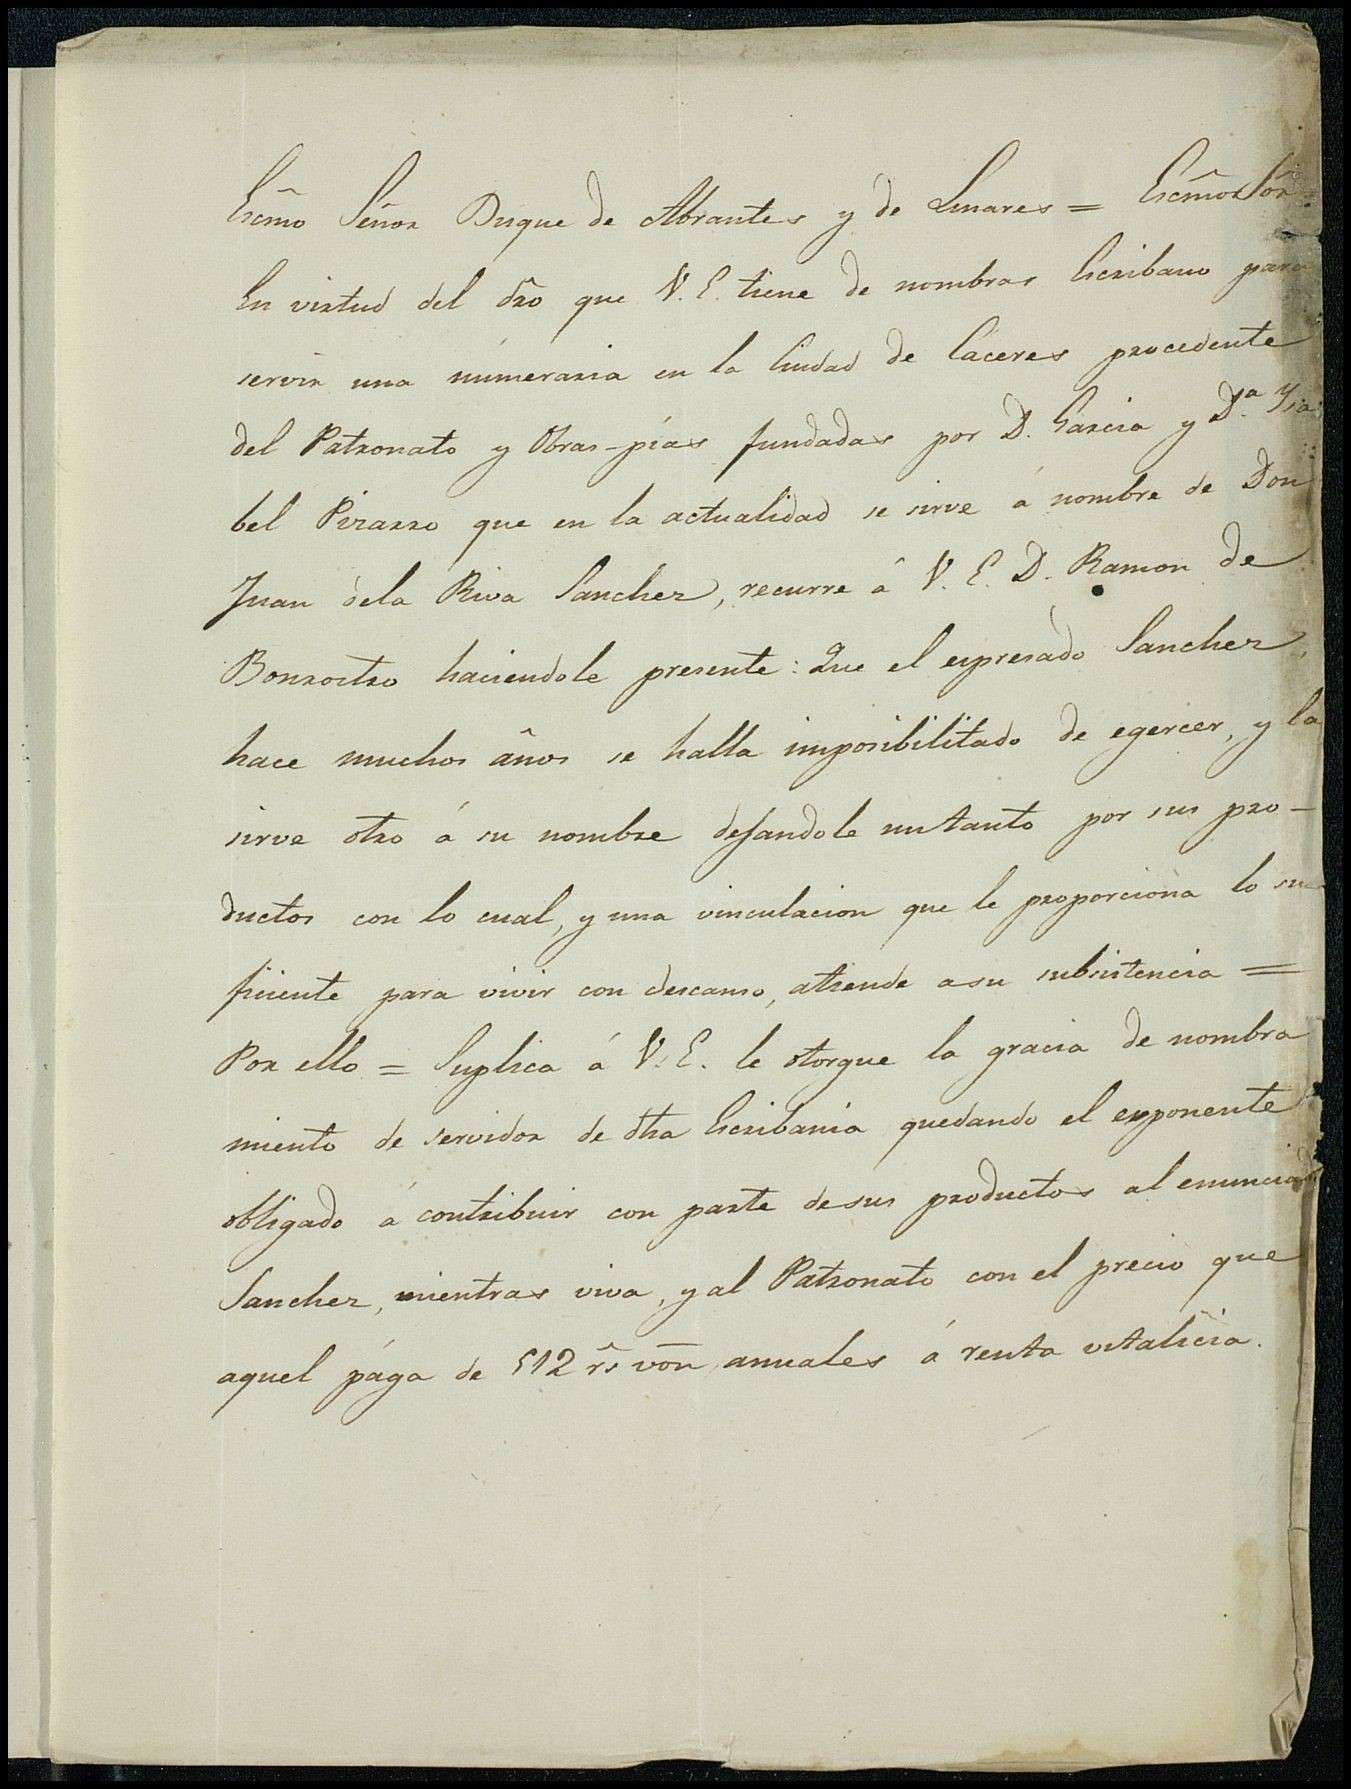 Escm̃o Señor Duque de Abrantes y de Linares = Escm̃or Sõr
En virtud del dr̃o que V. E. tiene de nombrar Escribano para
servir una númeraria en la Ciudad de Cáceres procedente
del Patronato y Obras-pías fundadas por D. Garcia y D.ª Ysa
bel Pizarro que en la actualidad se sirve á nombre de Don
Juan dela Riva Sanchez, recurre á V. E. D. Ramon de
haciendole presente: Que el espresado Sanchez,
hace muchos años se halla imposibilitado de egercer, y la
sirve otro á su nombre dejandole untanto por sus pro-
ductos con lo cual, y una vinculacion que le proporciona lo su
ficiente para vivir con descanso, atiende asu subsistencia =
Por ello = Suplica á V. E. le otorgue la gracia de nombra
miento de servidor de dha Escribania quedando el esponente
obligado á contribuir con parte desus productos al enunciado
Sanchez, mientras viva, y al Patronato con el precio que
aquel pága de 512 r̃s võn anuales á renta vitalicia.